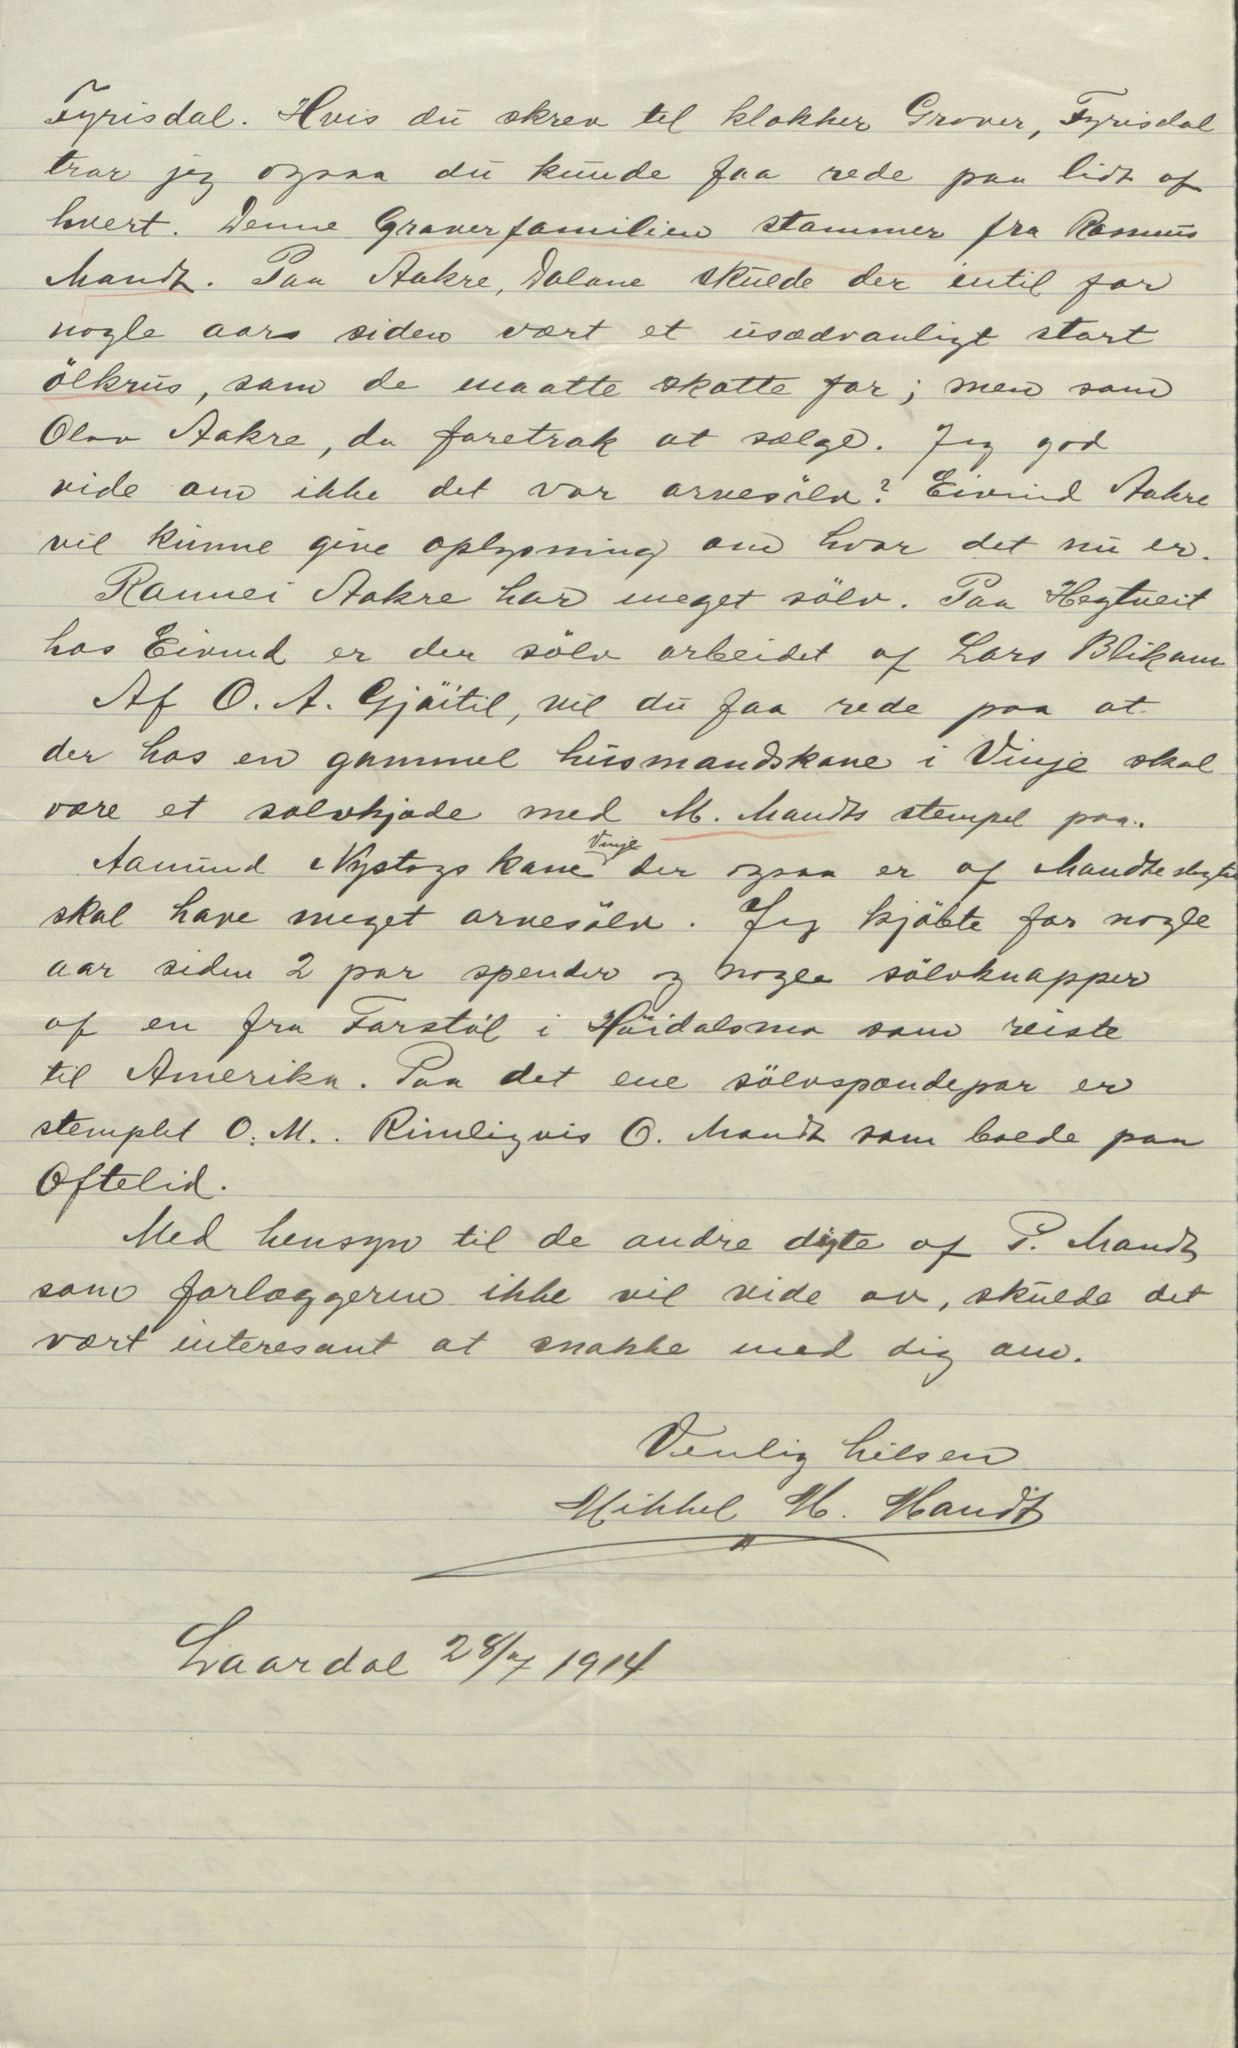 Fyrisdal. Hvis du skrev til klokker Graver, Fyrisdal
tror jeg ogsaa du kunde faa rede paa lidt af
hvert. Denne Graverfamilien stammer fra Rasmus
Mandt. Paa Aakre, Dalane skulde der intil for
nogle aars siden vært et usædvanligt stort
ölkrus, som de maatte skatte for; men som
Olav Aakre, da foretrak at sælge. Jeg gad
vide om ikke det var arvesölv? Eivind Aakre
vil kunne give oplysning om hvor det nu er.
Rannei Aakre har meget sölv. Paa Hegtveit
hos Eivind er der sölv arbeidet af Lars Blikom
Af O. A. Gjöitil, vil du faa rede paa at
der hos en gammel husmandskone i Vinje skal
være et solvkjæde med M. Mandts stempel paa.
Aamund Nystogs kone Vinje der ogsaa er af Mandteslegten
skal have meget arvesölv. Jeg kjöbte for nogle
aar siden 2 par spender og nogle sölvknapper
af en fra Farstöl i Höidalsmo som reiste
til Amerika. Paa det ene sölvspændepar er
stemplet O. M.. Rimeligvis O. Mandt som boede paa
Oftelid.
Med hensyn til de andre digte af P. Mandt
som forlæggeren ikke vil vide av, skulde det
vært interesant at snakke med dig om.
Venlig hilsen
Mikkel M. Mandt
Laardal 28/7 1914